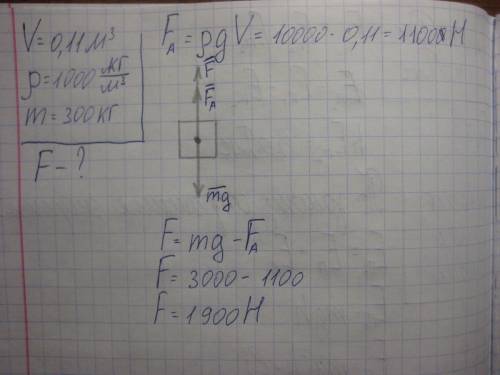 V = 0,11 м³
ρ = 1000 кг/м³
m = 300 кг
F - ?
F_A = ρgV = 10000 · 0,11 = 1100 Н
F
F_A
mg
F = mg - F_A
F = 3000 - 1100
F = 1900 Н